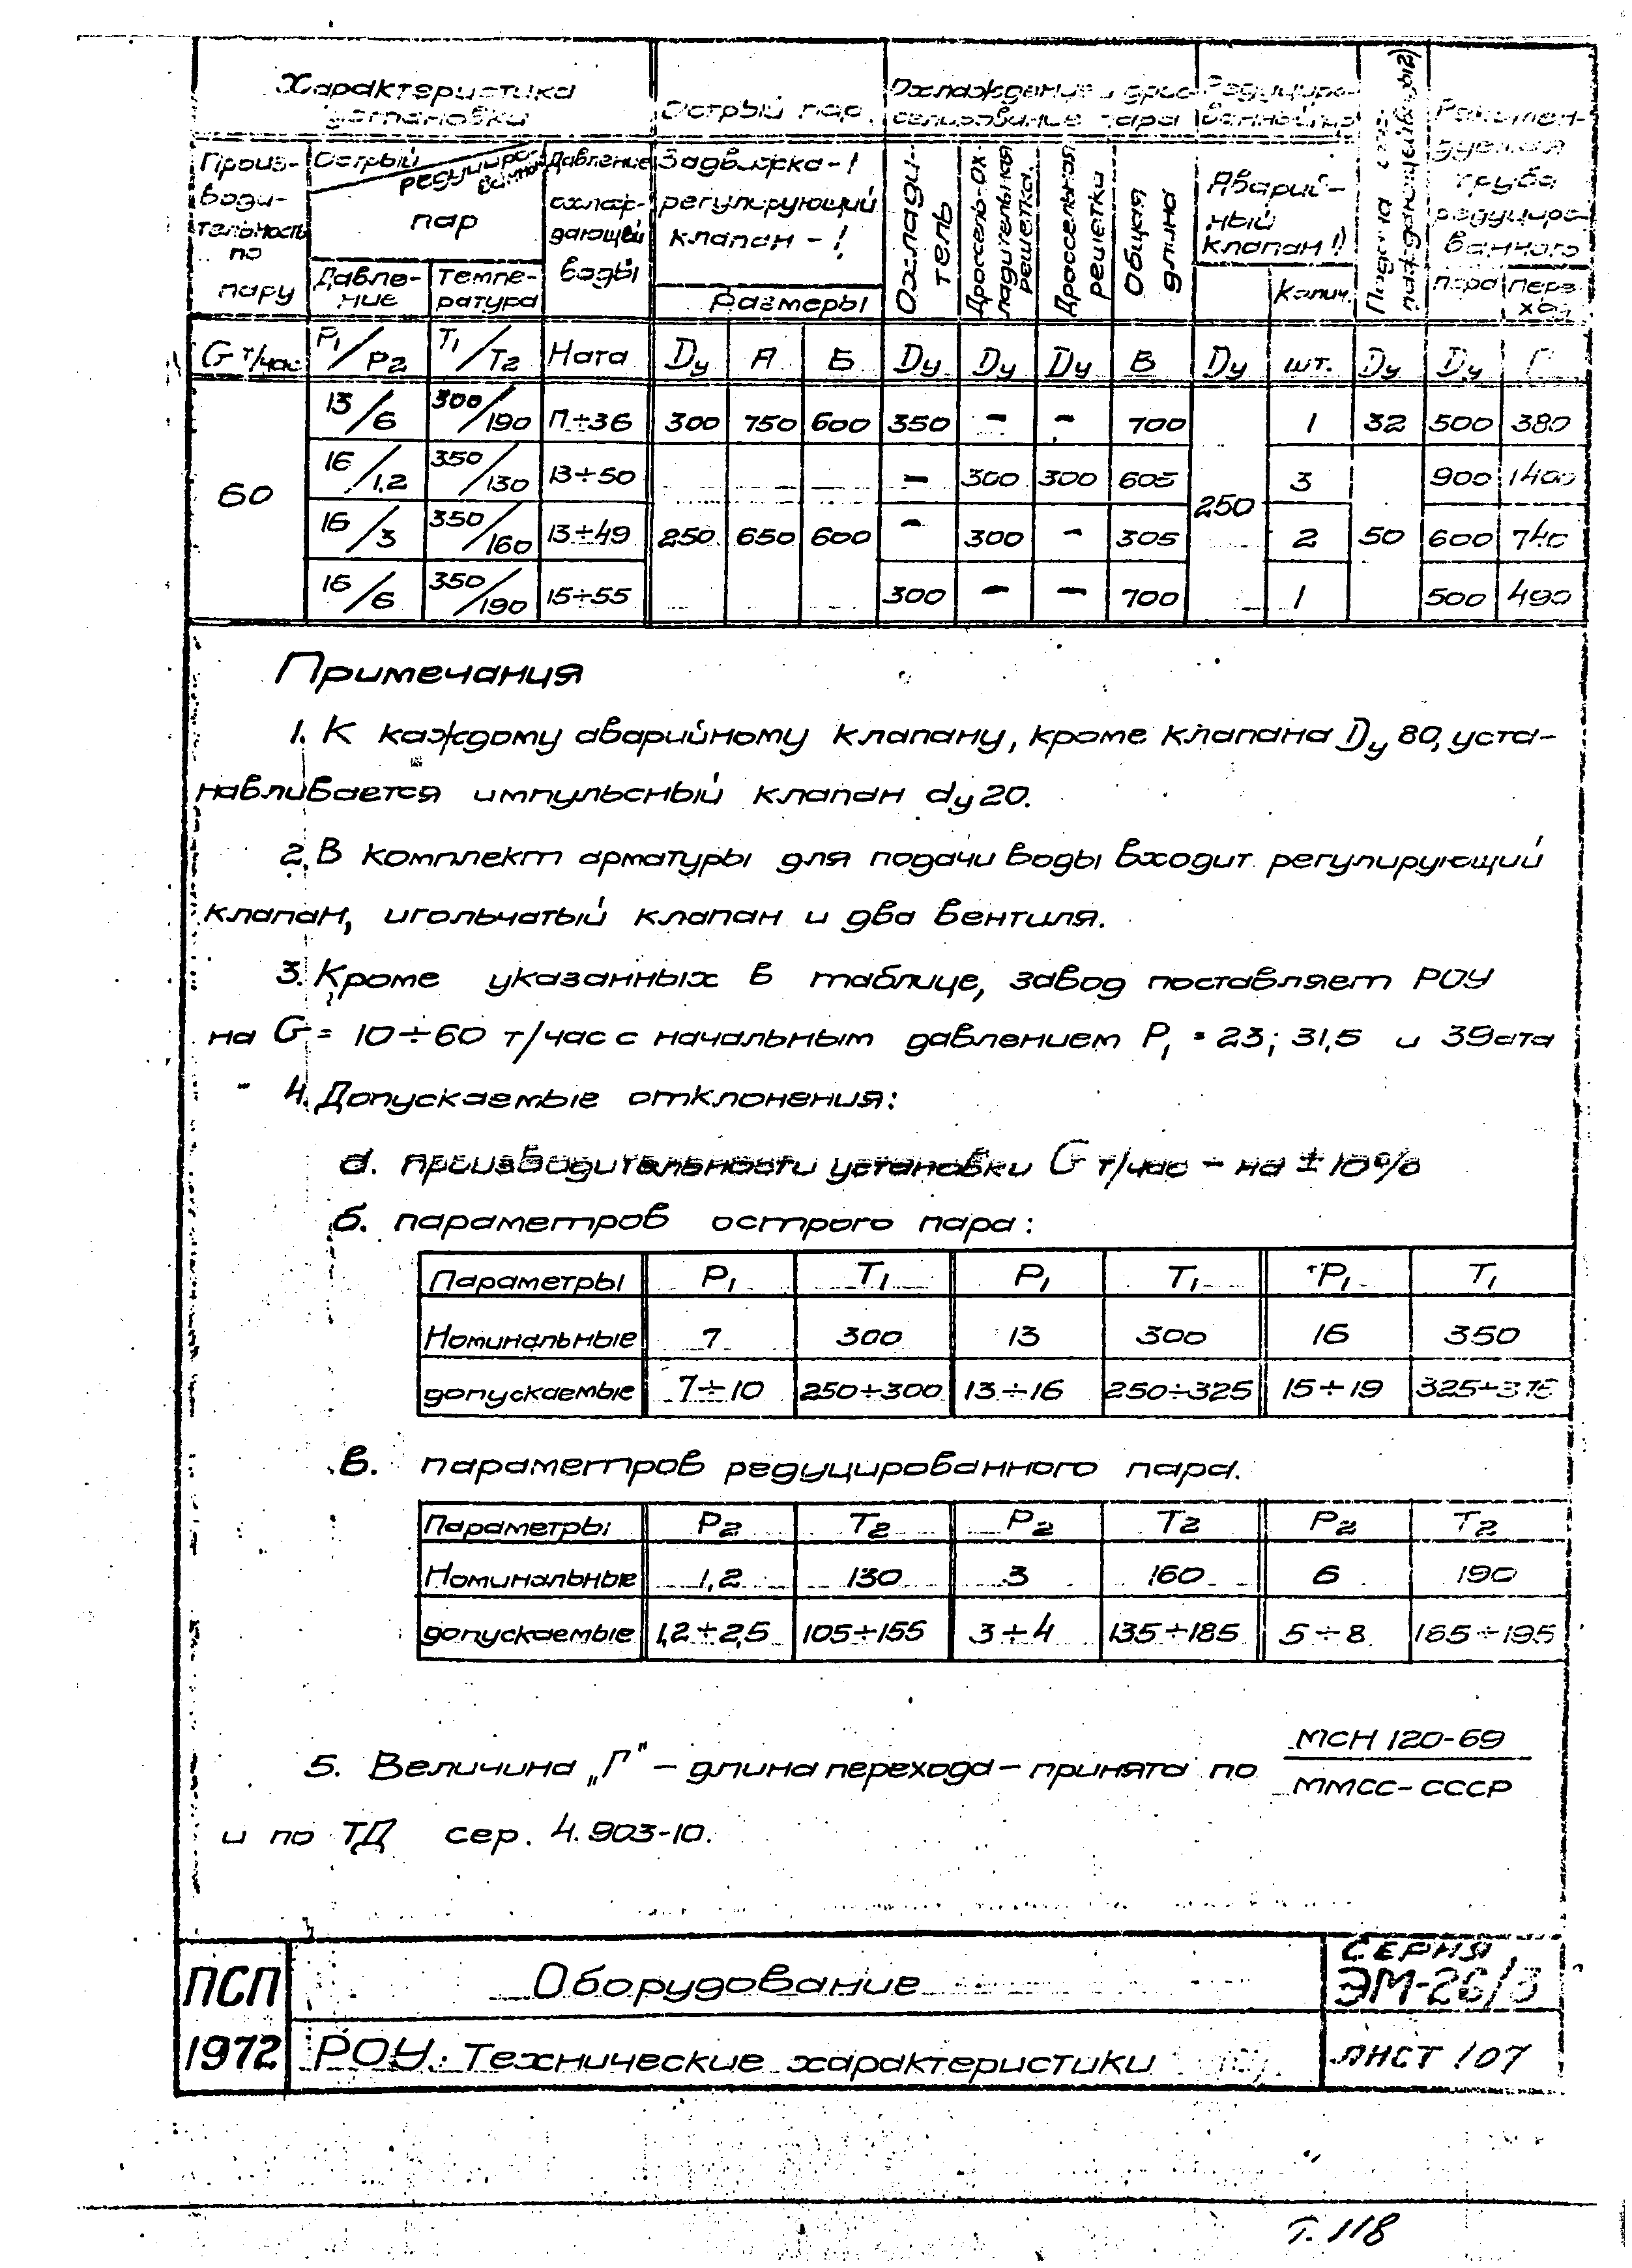 Характеристика установки | Острый пар | Охлаждение и дросселирование пара | Редуцированный пар
Производительность по пару | Острый / редуцированный пар | Давление охлаждающей воды | Задвижка-1 регулирующий клапан-1 | Охладитель | Дроссель-охладительная решетка | Дроссельная решетка | Общая длина | Аварийный клапан 1) | Подача охлаждающей воды 2) | Рекомендуемая труба редуцированного
Давление | Температура | Размеры | Колич. | пара | перехода
G т/час | P1/P2 | T1/T2 | Hата | Dу | А | Б | Dу | Dу | Dу | В | Dу | шт. | Dу | Dу | Г
60 | 13/6 | 300/190 | 11÷36 | 300 | 750 | 600 | 350 | - | - | 700 | 250 | 1 | 32 | 500 | 380
16/1,2 | 350/130 | 13÷50 | - | 300 | 300 | 605 | 3 | 900 | 1400
16/3 | 350/160 | 13÷49 | 250 | 650 | 600 | - | 300 | - | 305 | 2 | 50 | 600 | 740
16/6 | 350/190 | 15÷55 | 300 | - | - | 700 | 1 | 500 | 490
Примечания
1. К каждому аварийному клапану, кроме клапана Dу 80, уста-
навливается импульсный клапан dу 20.
2. В комплект арматуры для подачи воды входит регулирующий
клапан, игольчатый клапан и два вентиля.
3. Кроме указанных в таблице, завод поставляет РОУ
на G = 10÷60 т/час с начальным давлением P1 = 23; 31,5 и 39 ата
4. Допускаемые отклонения:
а. производительности установки G т/час - на ± 10%
б. параметров острого пара:
Параметры | P1 | T1 | P1 | T1 | P1 | T1
Номинальные | 7 | 300 | 13 | 300 | 16 | 350
допускаемые | 7÷10 | 250÷300 | 13÷16 | 250÷325 | 15÷19 | 325÷375
в. параметров редуцированного пара.
Параметры | P2 | T2 | P2 | T2 | P2 | T2
Номинальные | 1,2 | 130 | 3 | 160 | 6 | 190
допускаемые | 1,2÷2,5 | 105÷155 | 3÷4 | 135÷185 | 5÷8 | 165÷195
5. Величина „Г" - длина перехода - принята по МСН 120-69 / ММСС-СССР
и по ТД сер. 4.903-10.
ПСП 1972
Оборудование
РОУ. Технические характеристики
СЕРИЯ
ЭМ-26/3
ЛИСТ 107
т. 118